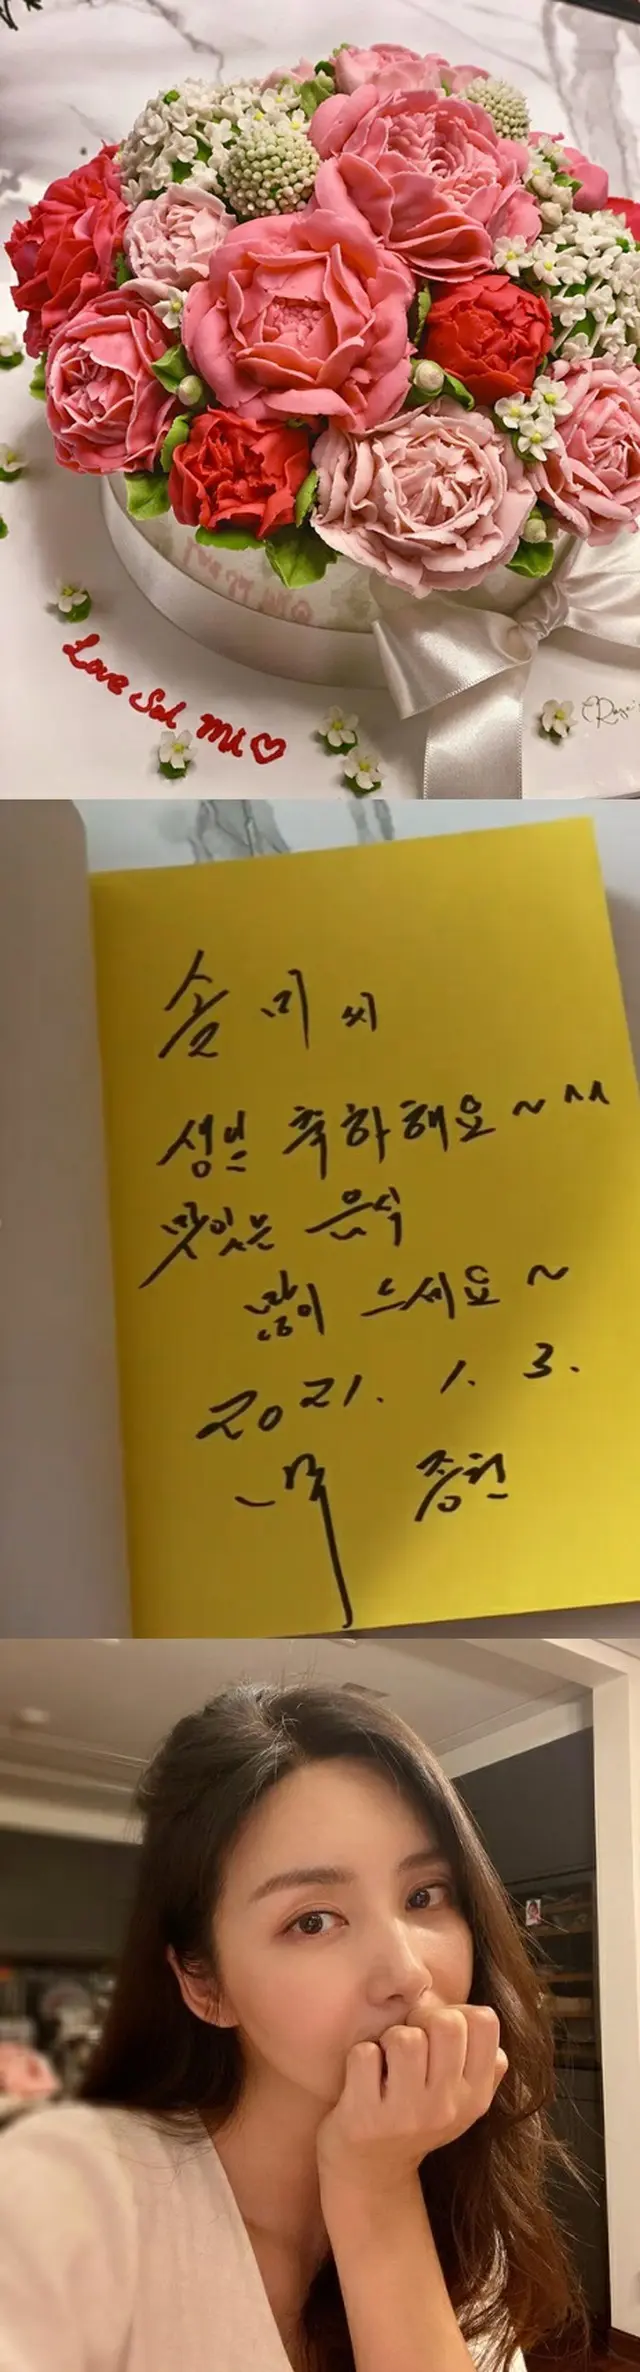 Love Sol Mi♡
솔미 씨
생일 축하해요~^^
맛있는 음식
많이 드세요~
2021. 1. 3.
종원